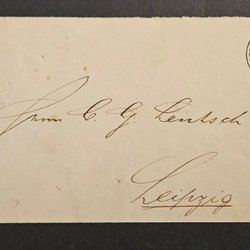 Herrn C. G. Lentsch
Leipzig